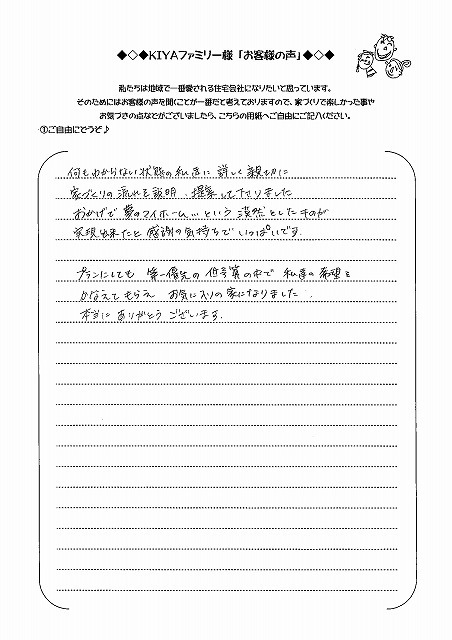 ◆◇◆KIYAファミリー様「お客様の声」◆◇◆
私たちは地域で一番愛される住宅会社になりたいと思っています。
そのためにはお客様の声を聞くことが一番だと考えておりますので、家づくりで楽しかった事や
お気づきの点などがございましたら、こちらの用紙へご自由にご記入ください。
①ご自由にどうぞ♪
何もわからない状態の私達に 詳しく親切に
家づくりの流れを説明、提案して下さりました
おかげで夢のマイホーム…という漠然としたものが
実現出来たと感謝の気持ちでいっぱいです.
プランにしても 第一優先の低予算の中で 私達の希望を
かなえてもらえ お気に入りの家になりました
本当に ありがとう ございます.